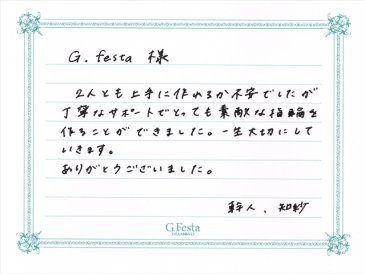 G. festa 様
2人とも上手に作れるか不安でしたが
丁寧なサポートでとっても素敵な指輪を
作ることができました。一生大切にして
いきます。
ありがとうございました。
、知紗
G.Festa